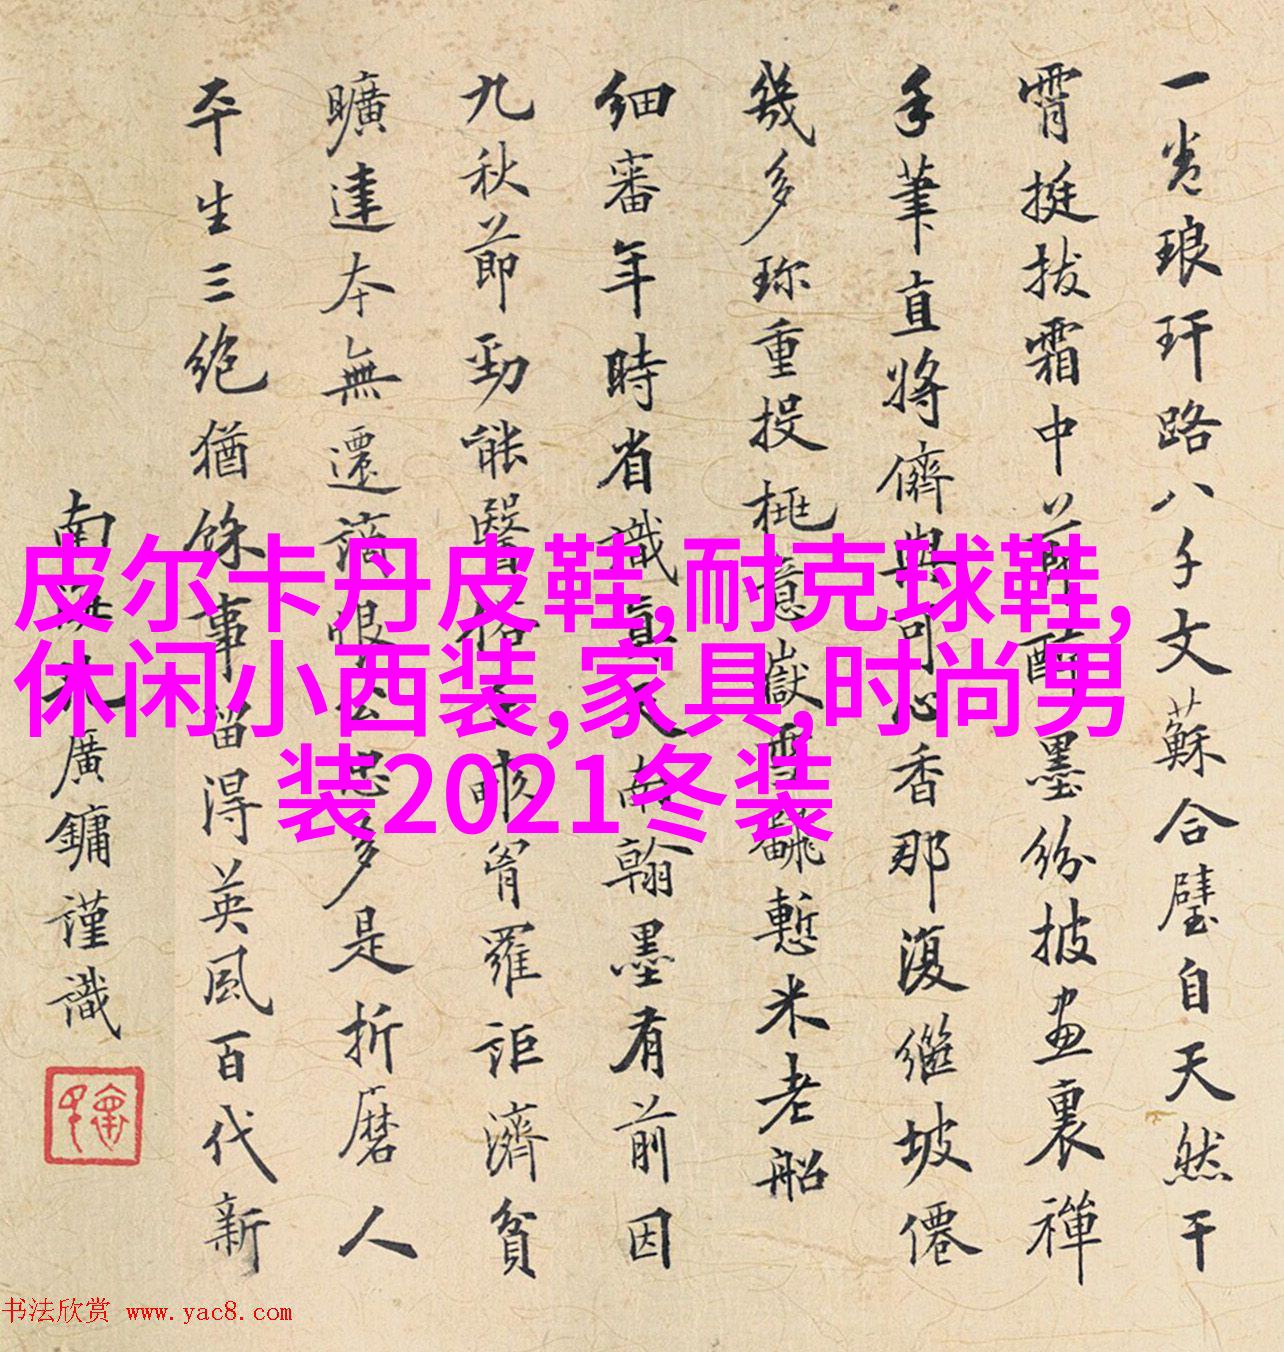 一卷琅玕路八千文蘇合璧自天然干
霄挺拔霜中節醉墨紛披畫裏禪
手筆直將儕與可心香那復繼坡僊
幾多珍重投桃意嶽雪飜慙米老船
細審年時省識真大南翰墨有前因
九秋節勁能醫俗 胷羅詎濟貧
曠達本無遷謫恨 忌多是折磨人
平生三絶猶餘事留得英風百代新
南 廣鏞謹識
皮尔卡丹皮鞋,耐克球鞋,
休闲小西装,家具,时尚男
装2021冬装
书法欣赏 www.yac8.com